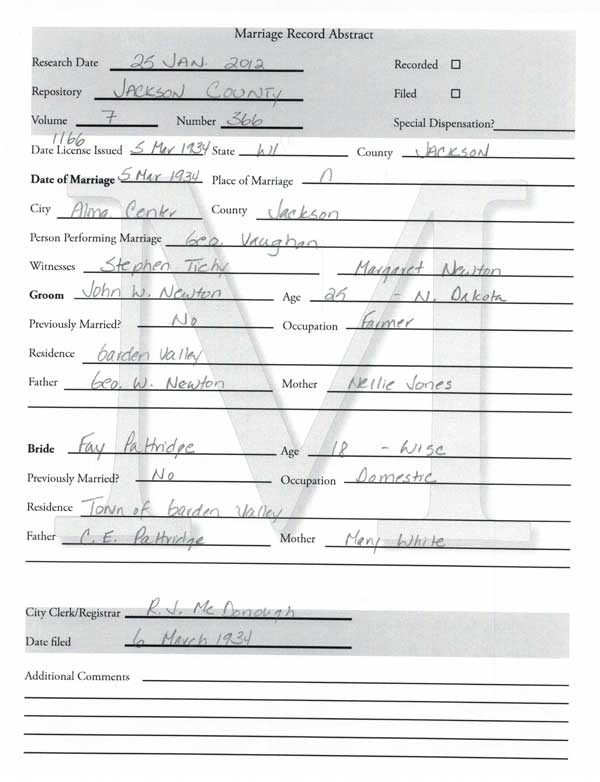 Marriage Record Abstract
Research Date 25 JAN. 2012 Recorded ☐
Repository JACKSON COUNTY Filed ☐
Volume 7 Number 366 Special Dispensation?
1166
Date License Issued 5 Mar 1934 State WI County JACKSON
Date of Marriage 5 Mar 1934 Place of Marriage
City Alma Center County Jackson
Person Performing Marriage Geo. Vaughan
Witnesses Stephen Tichy Margaret Newton
Groom John W. Newton Age 25 - N. Dakota
Previously Married? No Occupation Farmer
Residence Garden Valley
Father Geo. W. Newton Mother Nellie Jones
Bride Fay Pattridge Age 18 - Wisc
Previously Married? No Occupation Domestic
Residence Town of Garden Valley
Father C. E. Pattridge Mother Mary White
City Clerk/Registrar R. J. McDonough
Date filed 6 March 1934
Additional Comments
M